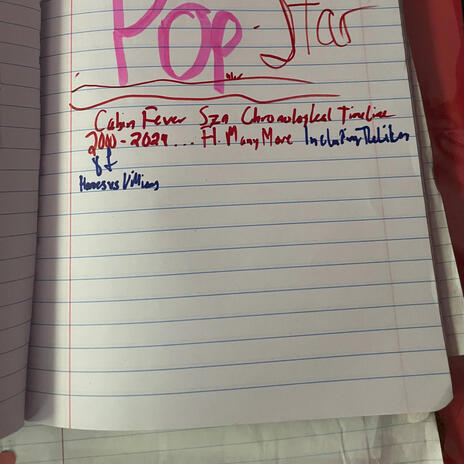 Pop-Star
Cabin Fever Szn Chronological Timeline
2000-2029... H. Many More Including The Likes
Heroes vs Villians